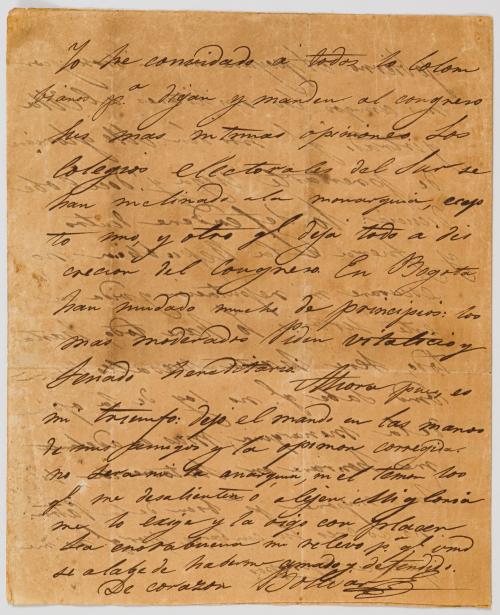 Yo he convidado a todos lo Colom
bianos p.a digan y manden al congreso
sus mas intimas opiniones. Los
Colegios electorales del Sur se
han inclinado a la monarquia, ecep
to uno, y otro q.e deja todo a dis
crecion del Congreso. En Bogota
han mudado mucho de principios: los
mas moderados piden vitalicio y
Senado hereditario. Ahora pues es
mi triunfo: dejo el mando en las manos
de mis amigos y la opinion corregida.
no sera ni la anarquia, ni el temor los
q.e me desalienten o alejen. Mi gloria
me lo exige y la sigo con placer
enorabuena mi relevo p.a q.e umd
se alabe de haberme amado y defendido.
De corazon Bolivar